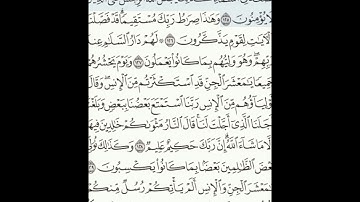 لَا يُؤْمِنُونَ ١٢٥ وَهَٰذَا صِرَٰطُ رَبِّكَ مُسْتَقِيمًا قَدْ فَصَّلْنَا
ٱلْأٓيَٰتِ لِقَوْمٍ يَذَّكَّرُونَ ١٢٦ ۞ لَهُمْ دَارُ ٱلسَّلَٰمِ عِندَ
رَبِّهِمْ وَهُوَ وَلِيُّهُم بِمَا كَانُوا۟ يَعْمَلُونَ ١٢٧ وَيَوْمَ يَحْشُرُهُمْ
جَمِيعًا يَٰمَعْشَرَ ٱلْجِنِّ قَدِ ٱسْتَكْثَرْتُم مِّنَ ٱلْإِنسِ وَقَالَ
أَوْلِيَآؤُهُم مِّنَ ٱلْإِنسِ رَبَّنَا ٱسْتَمْتَعَ بَعْضُنَا بِبَعْضٍ وَبَلَغْنَآ
أَجَلَنَا ٱلَّذِىٓ أَجَّلْتَ لَنَا قَالَ ٱلنَّارُ مَثْوَىٰكُمْ خَٰلِدِينَ فِيهَآ
إِلَّا مَا شَآءَ ٱللَّهُ إِنَّ رَبَّكَ حَكِيمٌ عَلِيمٌ ١٢٨ وَكَذَٰلِكَ نُوَلِّى
بَعْضَ ٱلظَّٰلِمِينَ بَعْضًۢا بِمَا كَانُوا۟ يَكْسِبُونَ ١٢٩
يَٰمَعْشَرَ ٱلْجِنِّ وَٱلْإِنسِ أَلَمْ يَأْتِكُمْ رُسُلٌ مِّنكُمْ